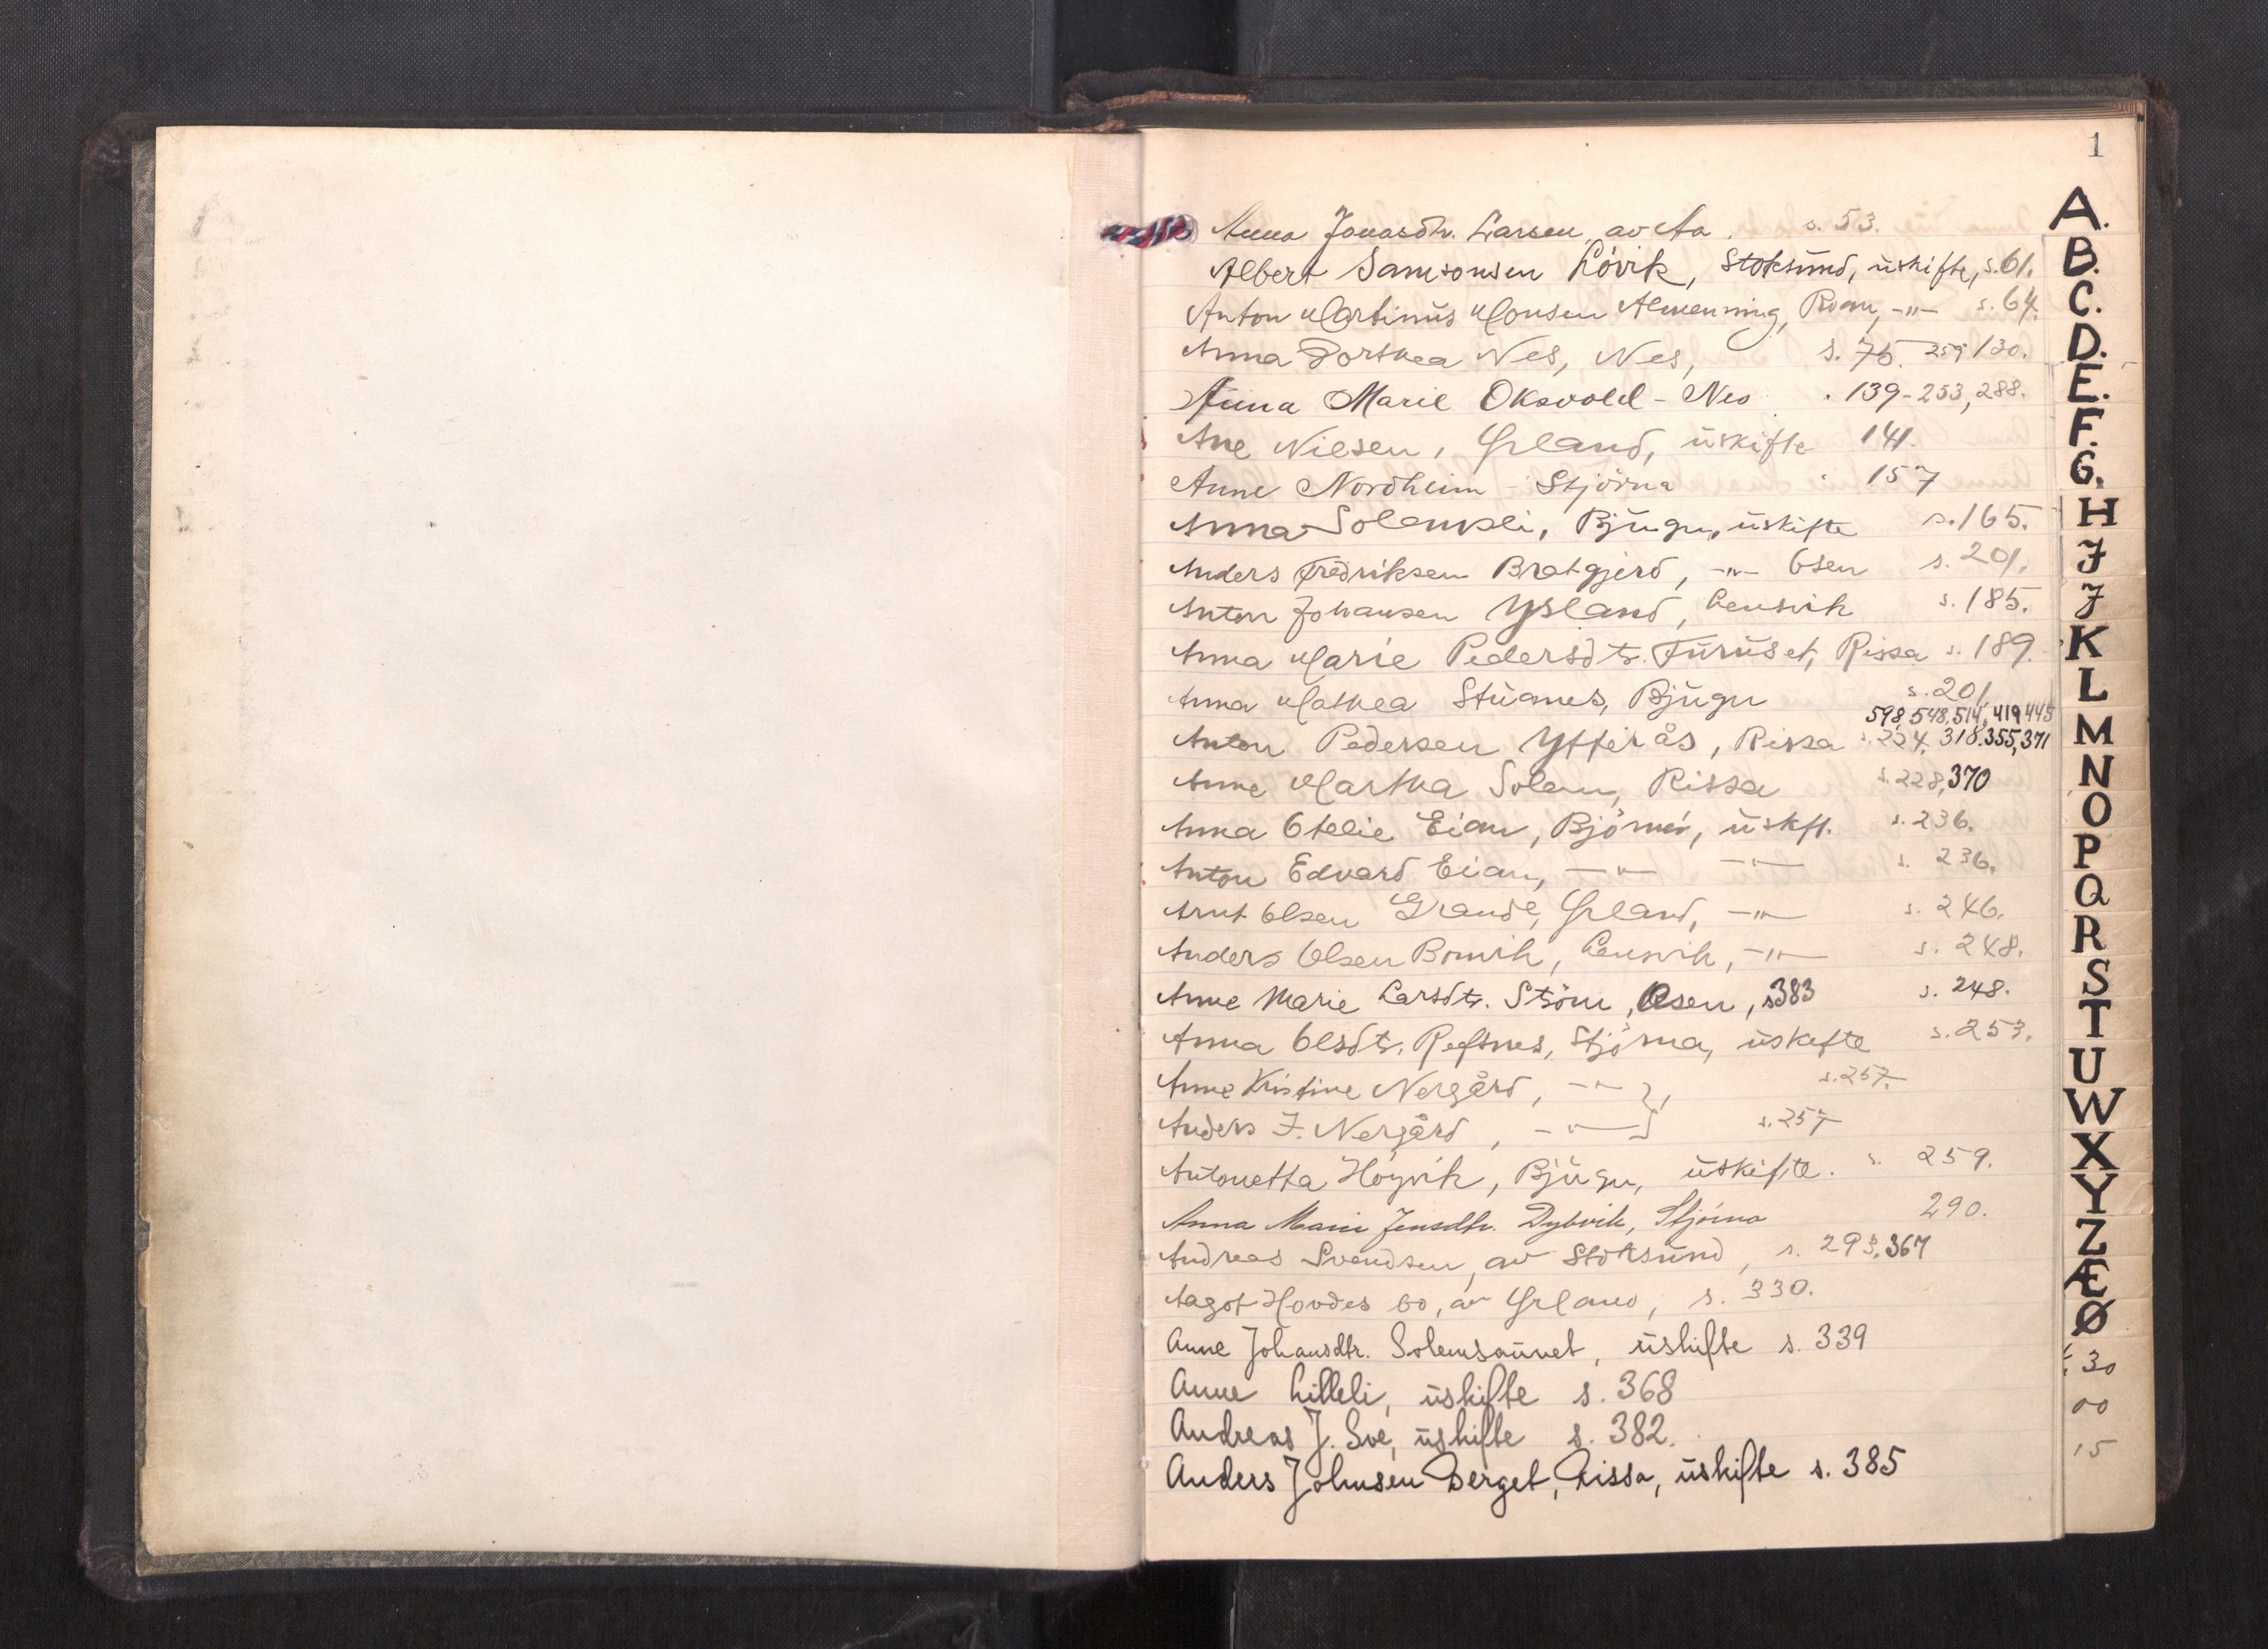 1
Anna Jonasdtr. Larsen, av Aa. s. 53.
Albert Samsonsen Lövik, Stoksund, uskifte, s. 61.
Anton Martinus Monsen Almenning, Roan, -"- s. 64.
Anna Dorthea Nes, Nes, s. 75. 259 130.
Anna Marie Oksvold - Nes . 139-253, 288.
Ane Nilsen, Ørland, uskifte 141.
Anne Nordheim - Stjörna " 157
Anna Solemsli, Bjugn, uskifte s. 165.
Anders Fredriksen Bratgjerd, -"- Osen s. 201.
Anton Johansen Ysland, Lensvik s. 185.
Anna Marie Pedersdtr. Furuset, Rissa s. 189.
Anna Mathea Stuanes, Bjugn s. 201
598, 548, 514, 419 445
Anton Pedersen Ytterås, Rissa s. 224, 318. 355, 371
Anne Martha Solem, Rissa s. 228, 370
Anna Otelie Eian, Björnör, uskft. s. 236.
Anton Edvard Eian, -"- -"- s. 236.
Arnt Olsen Grande, Ørland, -"- s. 246.
Anders Olsen Bomvik, Lensvik, -"- s. 248.
Anne Marie Larsdtr. Ström, Osen, s383 s. 248.
Anna Olsdtr. Refsnes, Stjörna, uskifte s. 253.
Anne Kristine Nergård, -"- }, s. 257.
Anders J. Nergård, -"- } s. 257
Antonetta Höyvik, Bjugn, uskifte. s. 259.
Anna Marie Jensdtr. Dybvik, Stjörna 290.
Andreas Svendsen, av Stoksund, s. 293, 367
Aagot Hovdes bo, av Ørland, s. 330.
Anne Johansdtr. Solemsaunet, uskifte s. 339
Anne Lilleli, uskifte s. 368
Andreas J. Sve, uskifte s. 382.
Anders Johnsen Berget, Rissa, uskifte s. 385
A.
B.
C.
D.
E.
F.
G.
H
I
J
K
L
M
N
O
P
Q
R
S
T
U
W
X
Y
Z
Æ
Ø
30
00
15